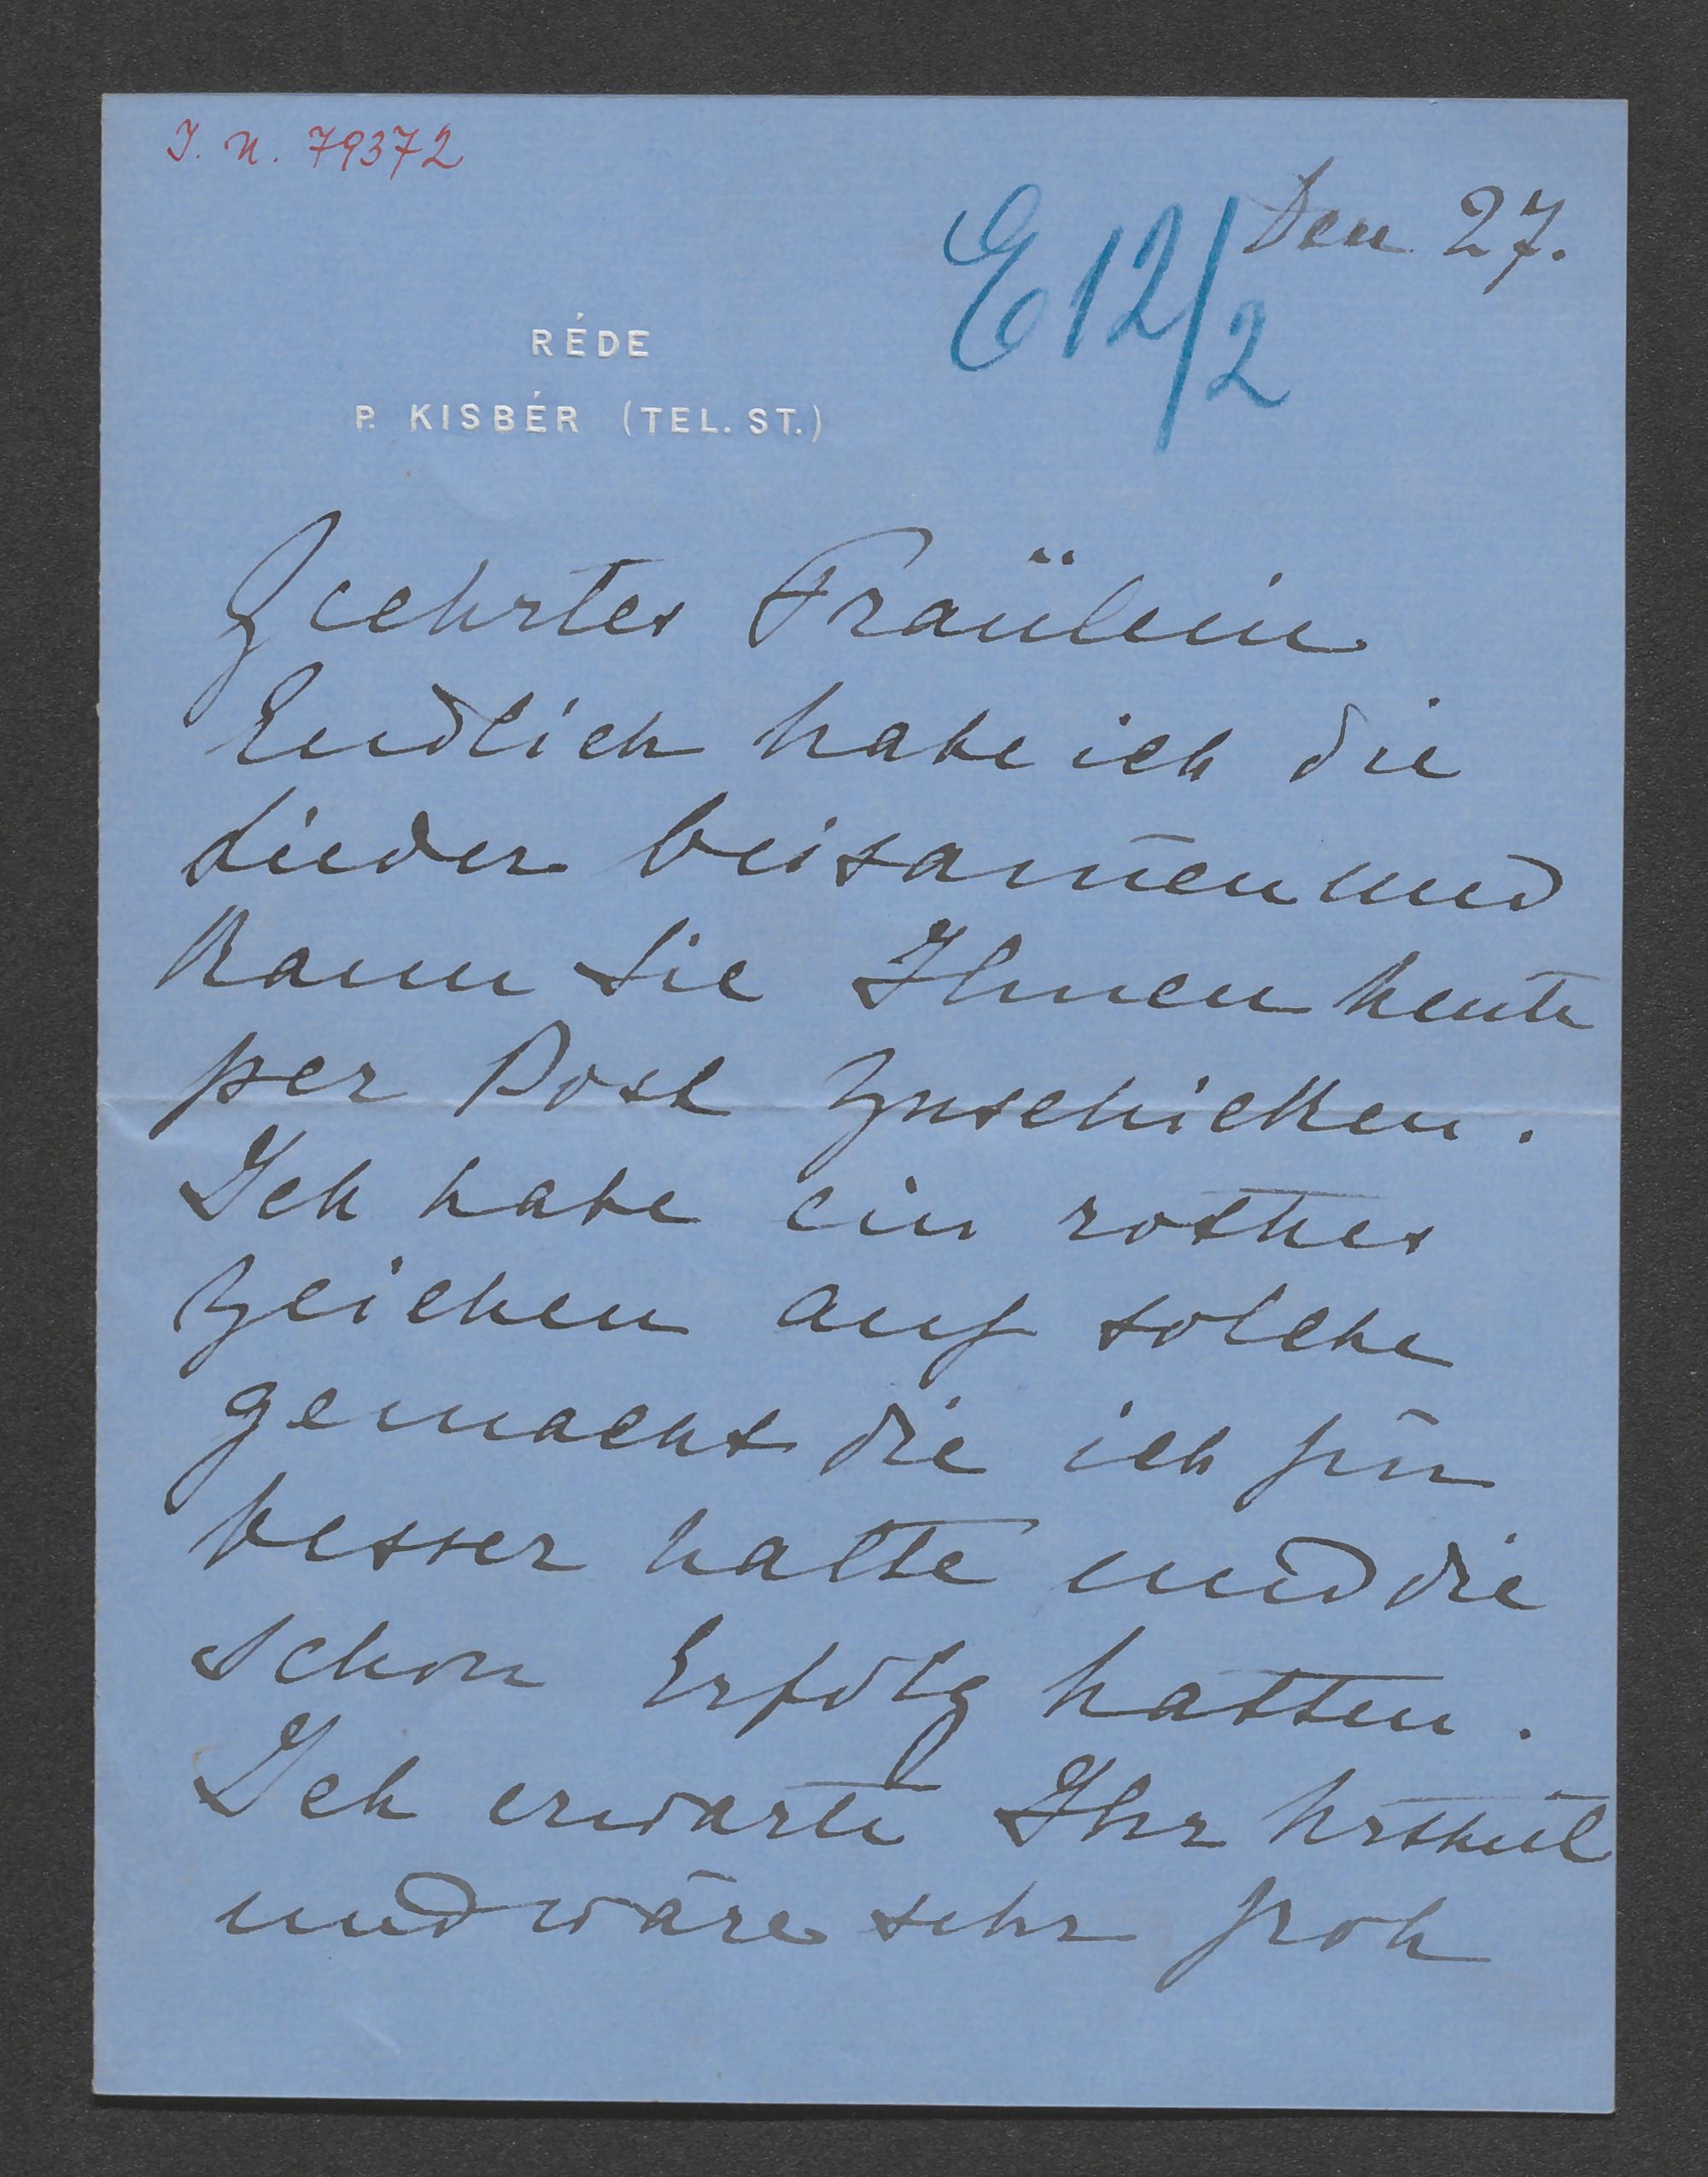 I. N. 79372
Den 27.
E 12/2
RÉDE
P. KISBÉR (TEL. ST.)
Geehrtes Fraülein
Endlich habe ich die
Lieder beisam̄en und
kann Sie Ihnen heute
per Post zuschicken.
Ich habe ein rothes
Zeichen auf solche
gemacht die ich für
besser halte und die
schon Erfolg hatten.
Ich erwarte Ihr Urtheil
und wäre sehr froh